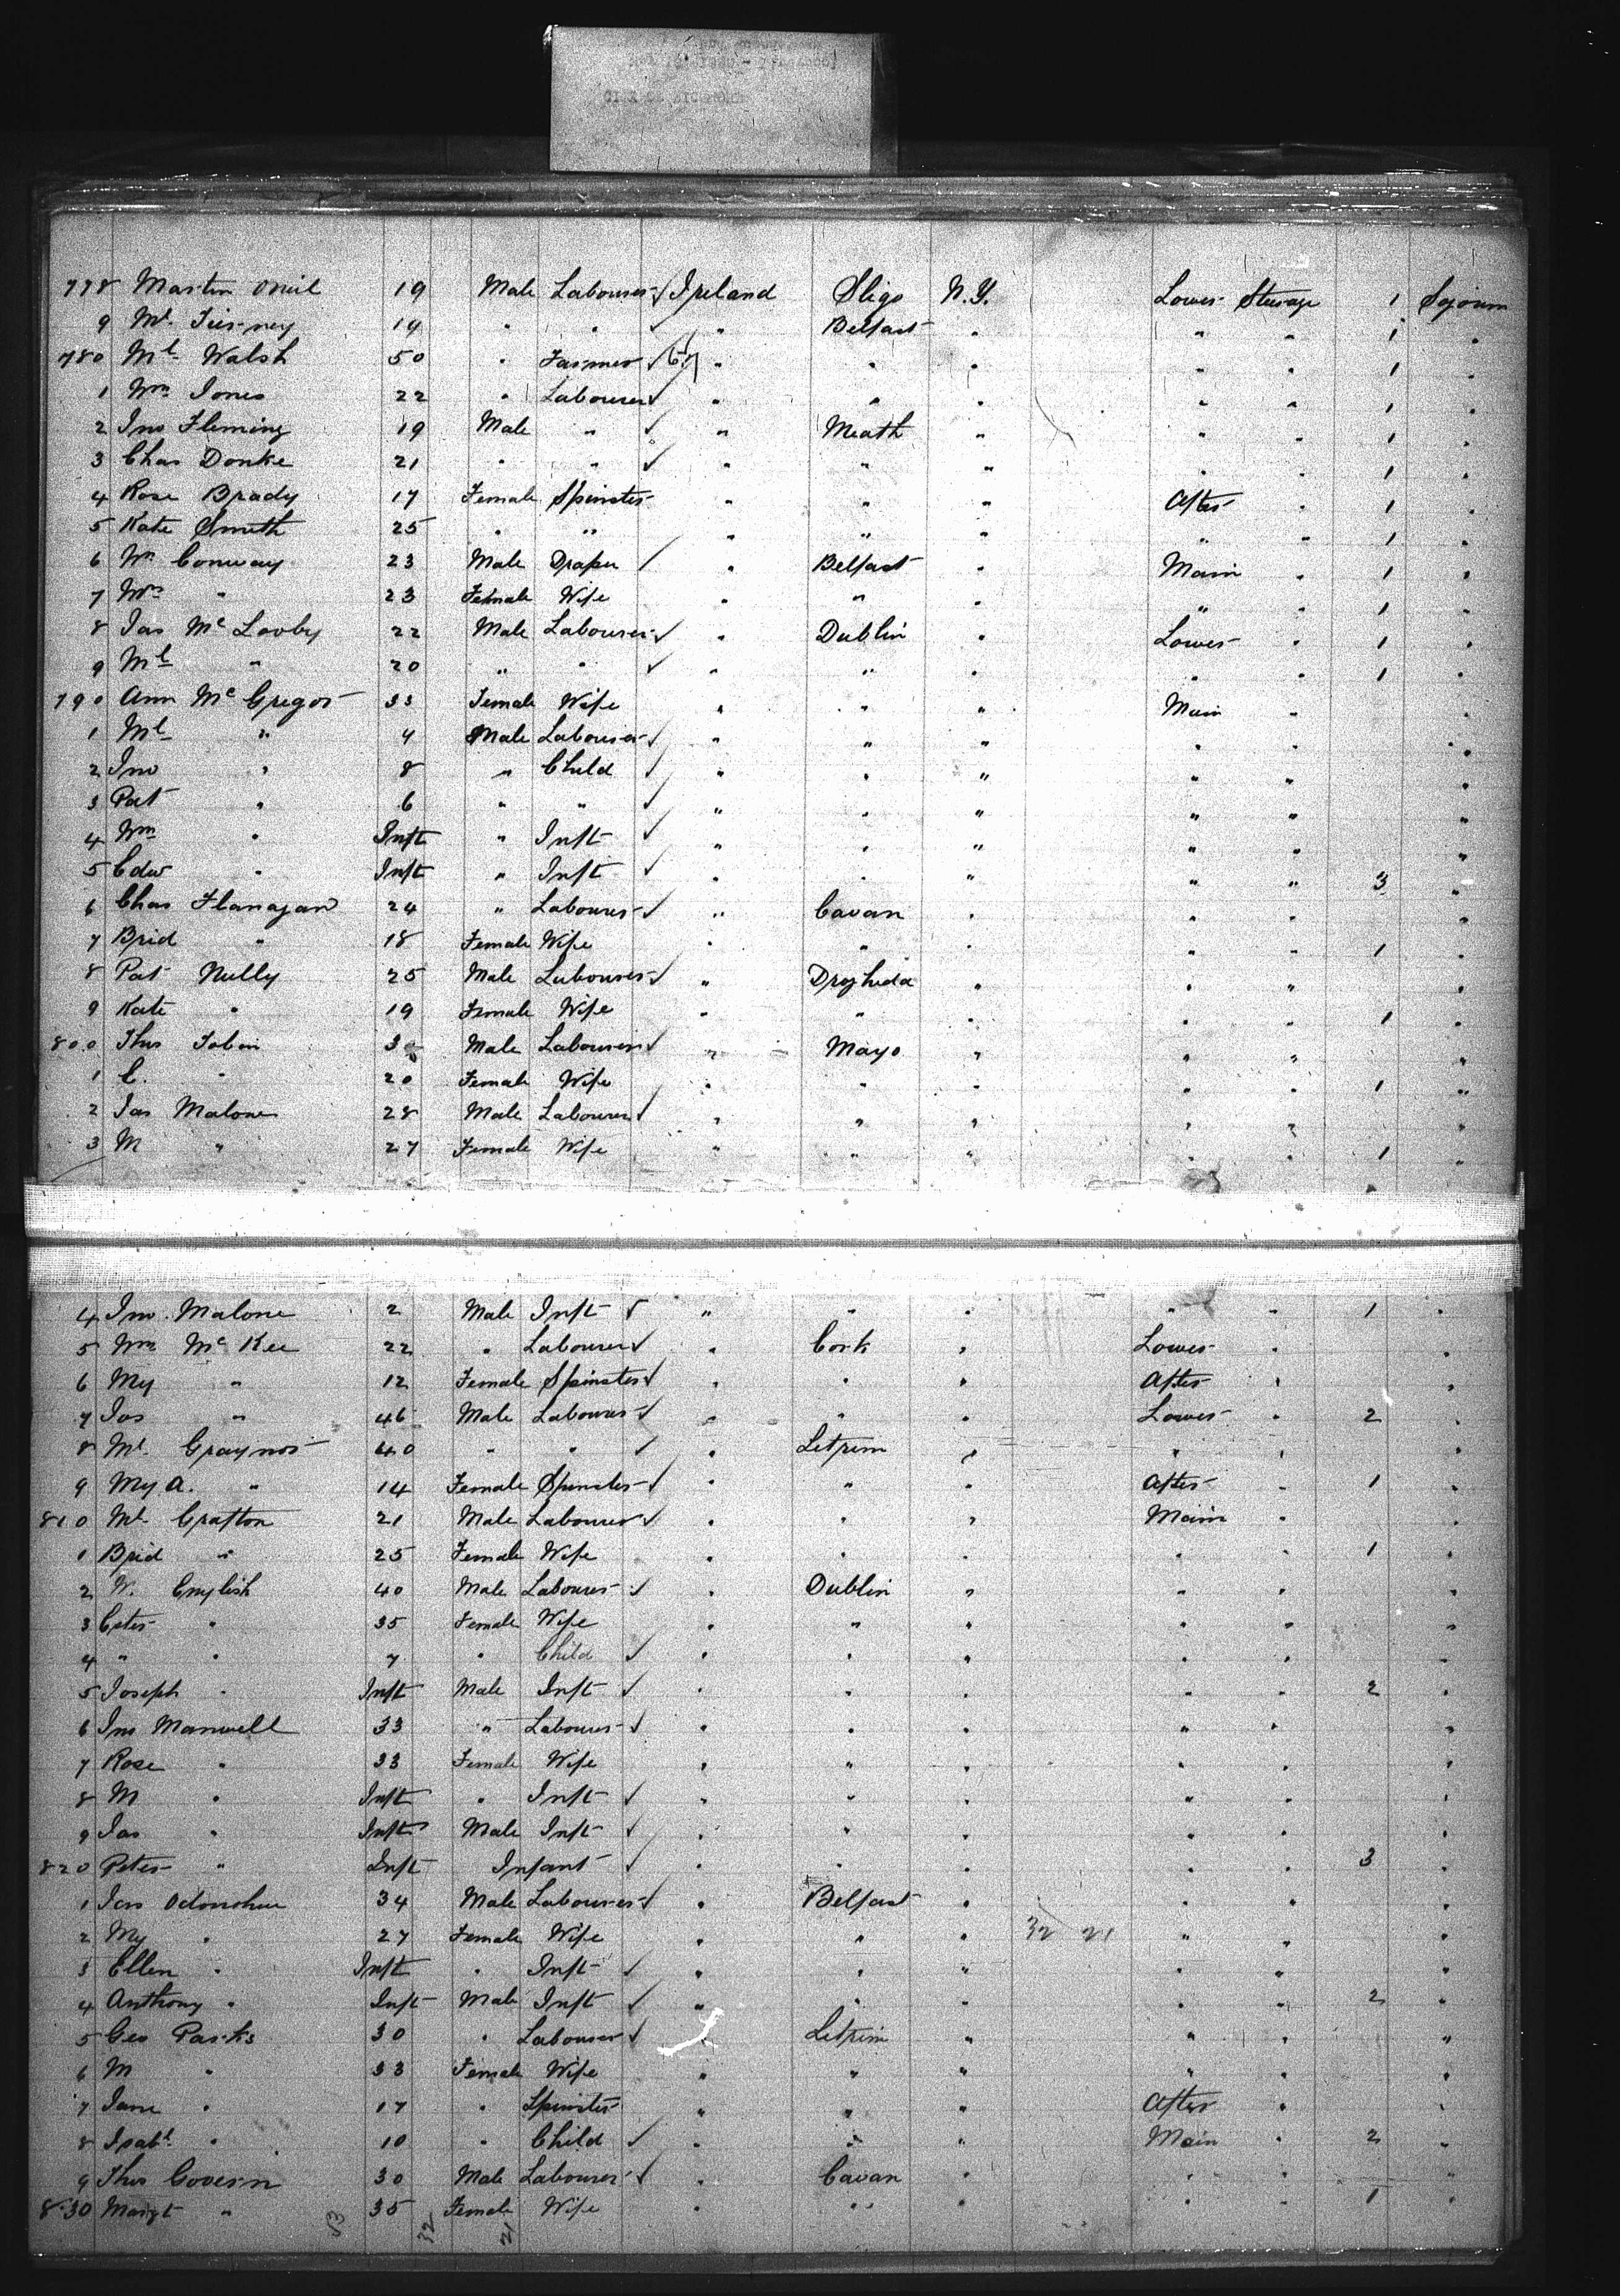 778 Martin Oneil 19 Male Labourer ✓ Ireland Sligo N.Y. Lower Steerage 1 Sojourn
9 Ml. Tierney 14 " " ✓ " Belfast " " " 1 "
780 Ml Walsh 50 " Farmer ✓ " " " " " 1 "
1 Wm Jones 22 " Labourer ✓ " " " " " 1 "
2 Jno Fleming 19 Male " ✓ " Meath " " " 1 "
3 Chas Donke 21 " " ✓ " " " " " 1 "
4 Rose Brady 17 Female Spinster " " " After " 1 "
5 Kate Smith 25 " " " " " " " 1 "
6 Wm Conway 23 Male Draper ✓ " Belfast " Main " 1 "
7 Mrs " 23 Female Wife " " " " " 1 "
8 Jas Mc Looby 22 Male Labourer ✓ " Dublin " Lower " 1 "
9 Ml " 20 " " ✓ " " " " " 1 "
790 Ann Mc Gregor 33 Female Wife " " " Main " "
1 Ml " 9 Male Labourer ✓ " " " " " "
2 Jno " 8 " Child ✓ " " " " " "
3 Pat " 6 " " ✓ " " " " " "
4 Wm " Inft " Inft ✓ " " " " " "
5 Edw " Inft " Inft ✓ " " " " " 3 "
6 Chas Flanagan 24 " Labourer ✓ " Cavan " " " "
7 Brid " 18 Female Wife " " " " " 1 "
8 Pat Nully 25 Male Labourer ✓ " Droghida " " " "
9 Kate " 19 Female Wife " " " " " 1 "
800 Thos Tobin Male Labourer ✓ " Mayo " " " "
1 C. " 20 Female Wife " " " " " 1 "
2 Jas Malone 28 Male Labourer ✓ " " " " " "
3 M " 27 Female Wife " " " " " 1 "
4 Jno. Malone 2 Male Inft ✓ " " " " " 1 "
5 Wm Mc Kee 22 " Labourer ✓ " Cork " Lower " "
6 My " 12 Female Spinster ✓ " " " After " "
7 Jas " 46 Male Labourer ✓ " " " Lower " 2 "
8 Ml. Graynor 40 " " ✓ " Letrim " " " "
9 My A. " 14 Female Spinster ✓ " " " After " 1 "
810 Ml Grafton 21 Male Labourer ✓ " " " Main " "
1 Brid " 25 Female Wife " " " " " 1 "
2 W. English 40 Male Labourer ✓ " Dublin " " " "
3 " 35 Female Wife " " " " " "
4 " " 7 " Child ✓ " " " " " "
5 Joseph " Inft Male Inft ✓ " " " " " 2 "
6 Jno Manwell 33 " Labourer ✓ " " " " " "
7 Rose " 33 Female Wife " " " " " "
8 M " Inft " Inft ✓ " " " " " "
9 Jas " Inft Male Inft ✓ " " " " " "
820 Peter " Inft Infant ✓ " " " " " 3 "
1 Jas Odonohue 34 Male Labourer ✓ " Belfast " " " "
2 My " 27 Female Wife " " " 32 21 " " "
3 Ellen " Inft " Inft ✓ " " " " " "
4 Anthony " Inft Male Inft ✓ " " " " " 2 "
5 Geo Parks 30 " Labourer ✓ " Letrim " " " "
6 M " 33 Female Wife " " " " " "
7 Jane " 17 " Spinster " " " After " "
8 Isabl " 10 " Child ✓ " " " Main " 2 "
9 Thos Govern 30 Male Labourer ✓ " Cavan " " " "
830 Margt " 35 Female Wife " " " " " 1 "
53 32 21